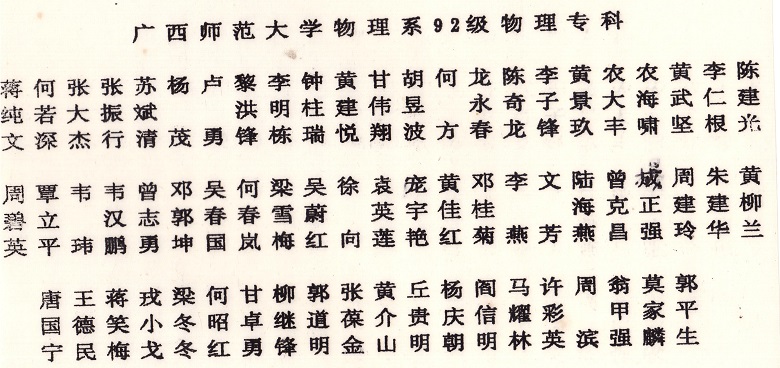 广西师范大学物理系92级物理专科
蒋纯文 何若深 张大杰 张振行 苏斌清 杨茂 卢勇 黎洪锋 李明栋 钟柱瑞 黄建悦 甘伟翔 胡昱波 何方 龙永春 陈奇龙 李子锋 黄景玖 农大丰 农海啸 黄武坚 李仁根 陈建光
周碧英 覃立平 韦玮 韦汉鹏 曾志勇 邓郭坤 吴春国 何春岚 梁雪梅 吴蔚红 徐向 袁英莲 庞宇艳 黄佳红 邓桂菊 李燕 文芳 陆海燕 曾克昌 正强 周建玲 朱建华 黄柳兰
唐国宁 王德民 蒋笑梅 戎小戈 梁冬冬 何昭红 甘卓勇 柳继锋 郭道明 张葆金 黄介山 丘贵明 杨庆朝 阎信明 马耀林 许彩英 周滨 翁甲强 莫家麟 郭平生